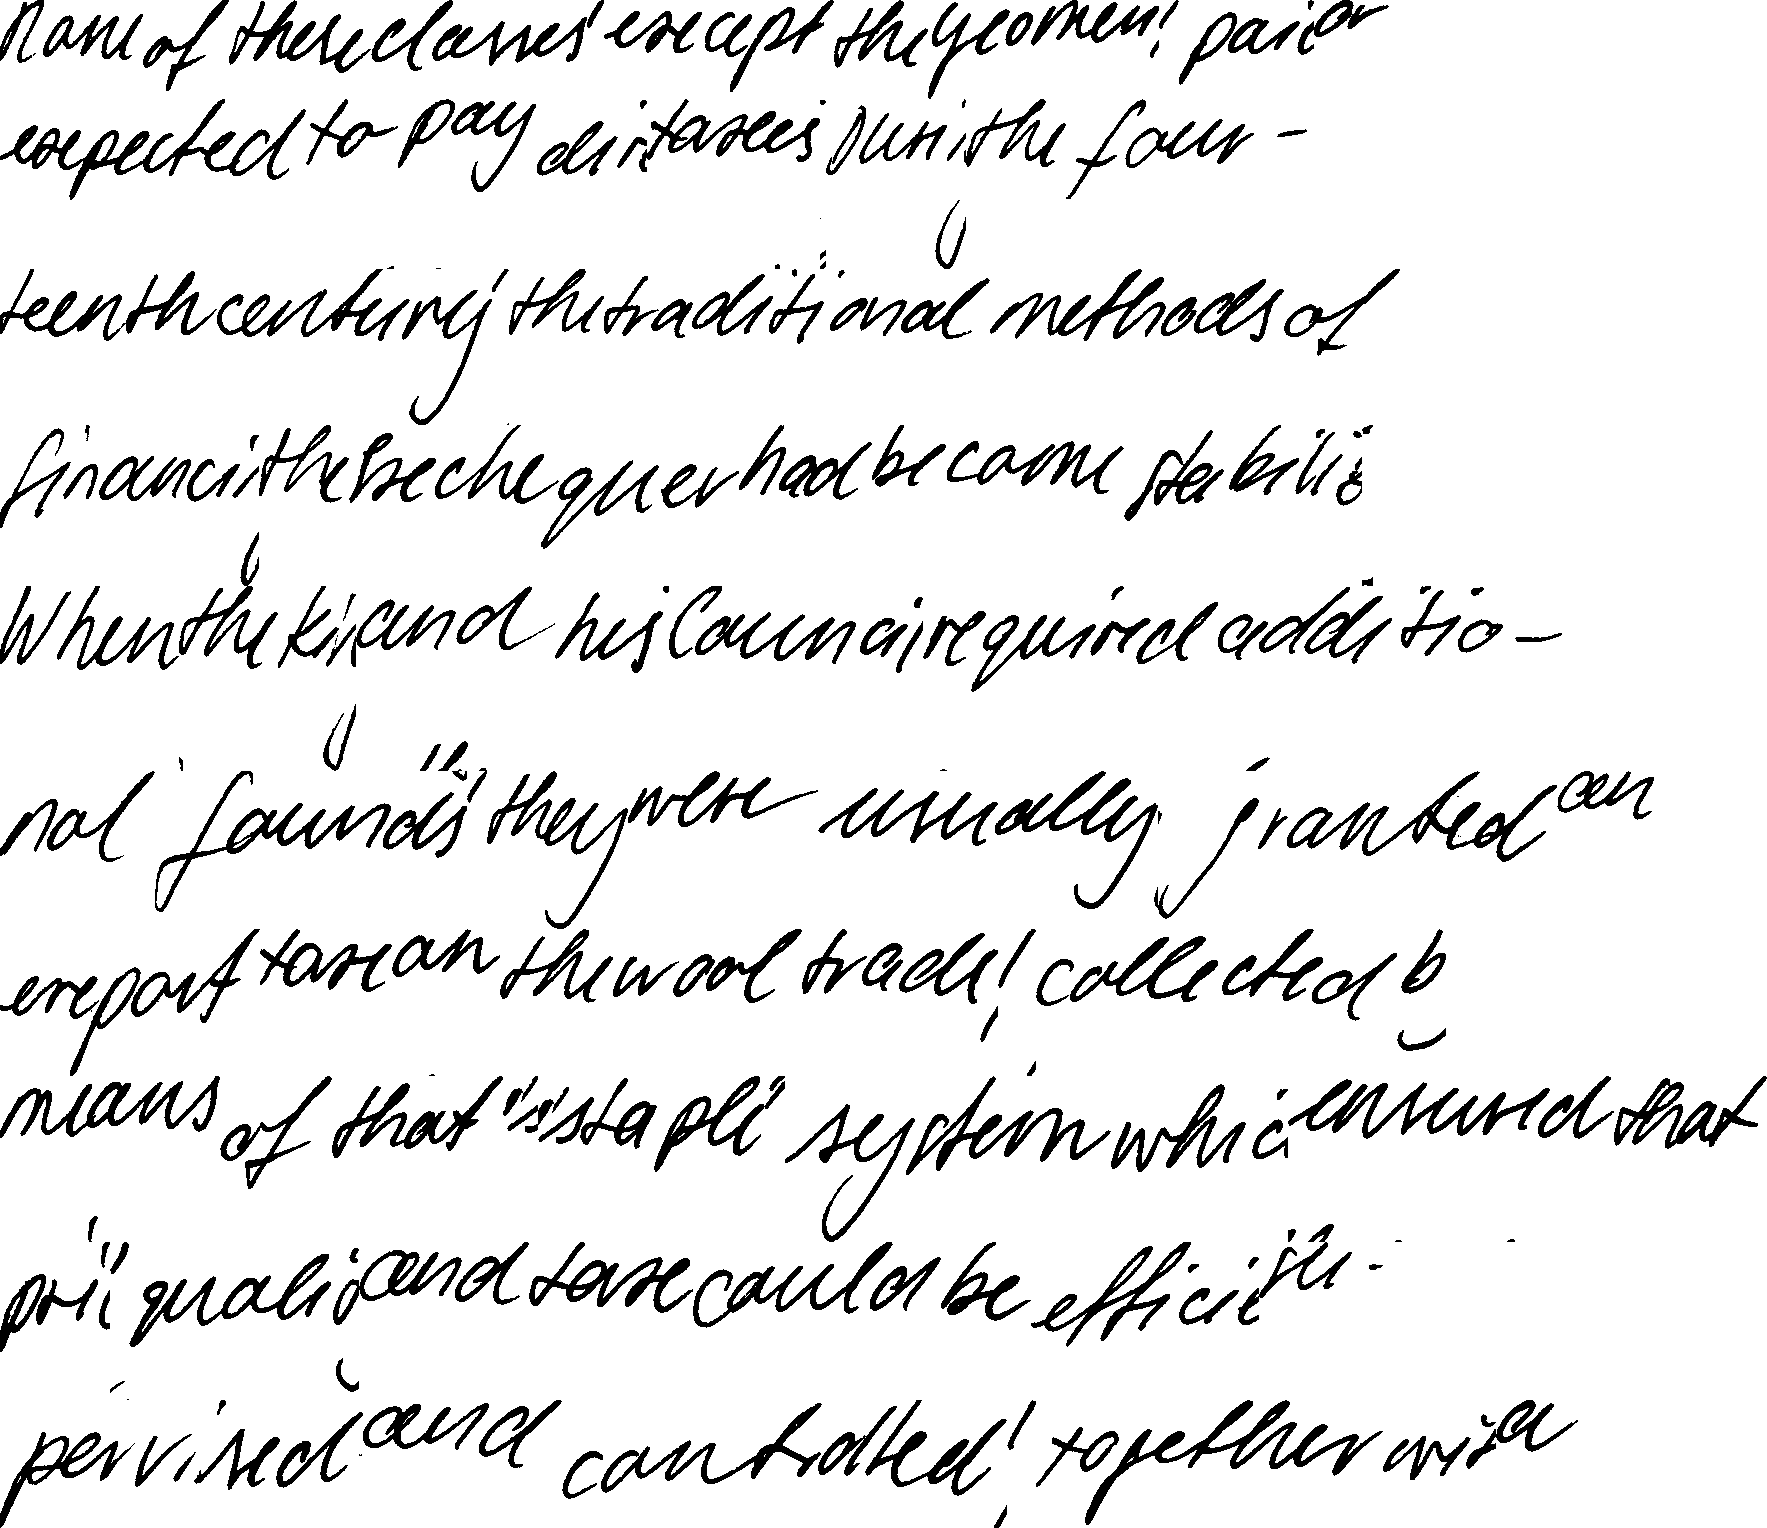 None of these classes except the yeomen, paid or
expected to pay direct taxes. During the four-
teenth century the traditional methods of
financing the Exchequer had become stabilis
When the king and his Council required additio-
nal founds they were usually granted an
export tax on the wool trade, collected by
means of that "staple" system which ensured that
price quality and tax could be efficiently su-
pervised and controlled, together with a